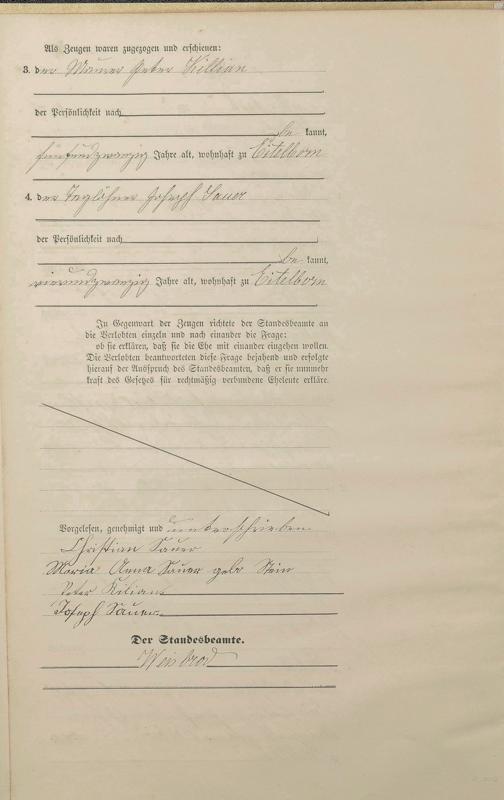 Als Zeugen waren zugezogen und erschienen:
3. der Maurer Peter Killian
der Persönlichkeit nach
be kannt,
fünfundzwanzig Jahre alt, wohnhaft zu Eitelborn
4. der Taglöhner Joseph Sauer
der Persönlichkeit nach
be kannt,
vierundzwanzig Jahre alt, wohnhaft zu Eitelborn
In Gegenwart der Zeugen richtete der Standesbeamte an
die Verlobten einzeln und nach einander die Frage:
ob sie erklären, daß sie die Ehe mit einander eingehen wollen.
Die Verlobten beantworteten diese Frage bejahend und erfolgte
hierauf der Ausspruch des Standesbeamten, daß er sie nunmehr
kraft des Gesetzes für rechtmäßig verbundene Eheleute erkläre.
Vorgelesen, genehmigt und unterschrieben
Christian Sauer
Maria Anna Sauer geb Stein
Peter Kilian
Joseph Sauer
Der Standesbeamte.
Weisbrod